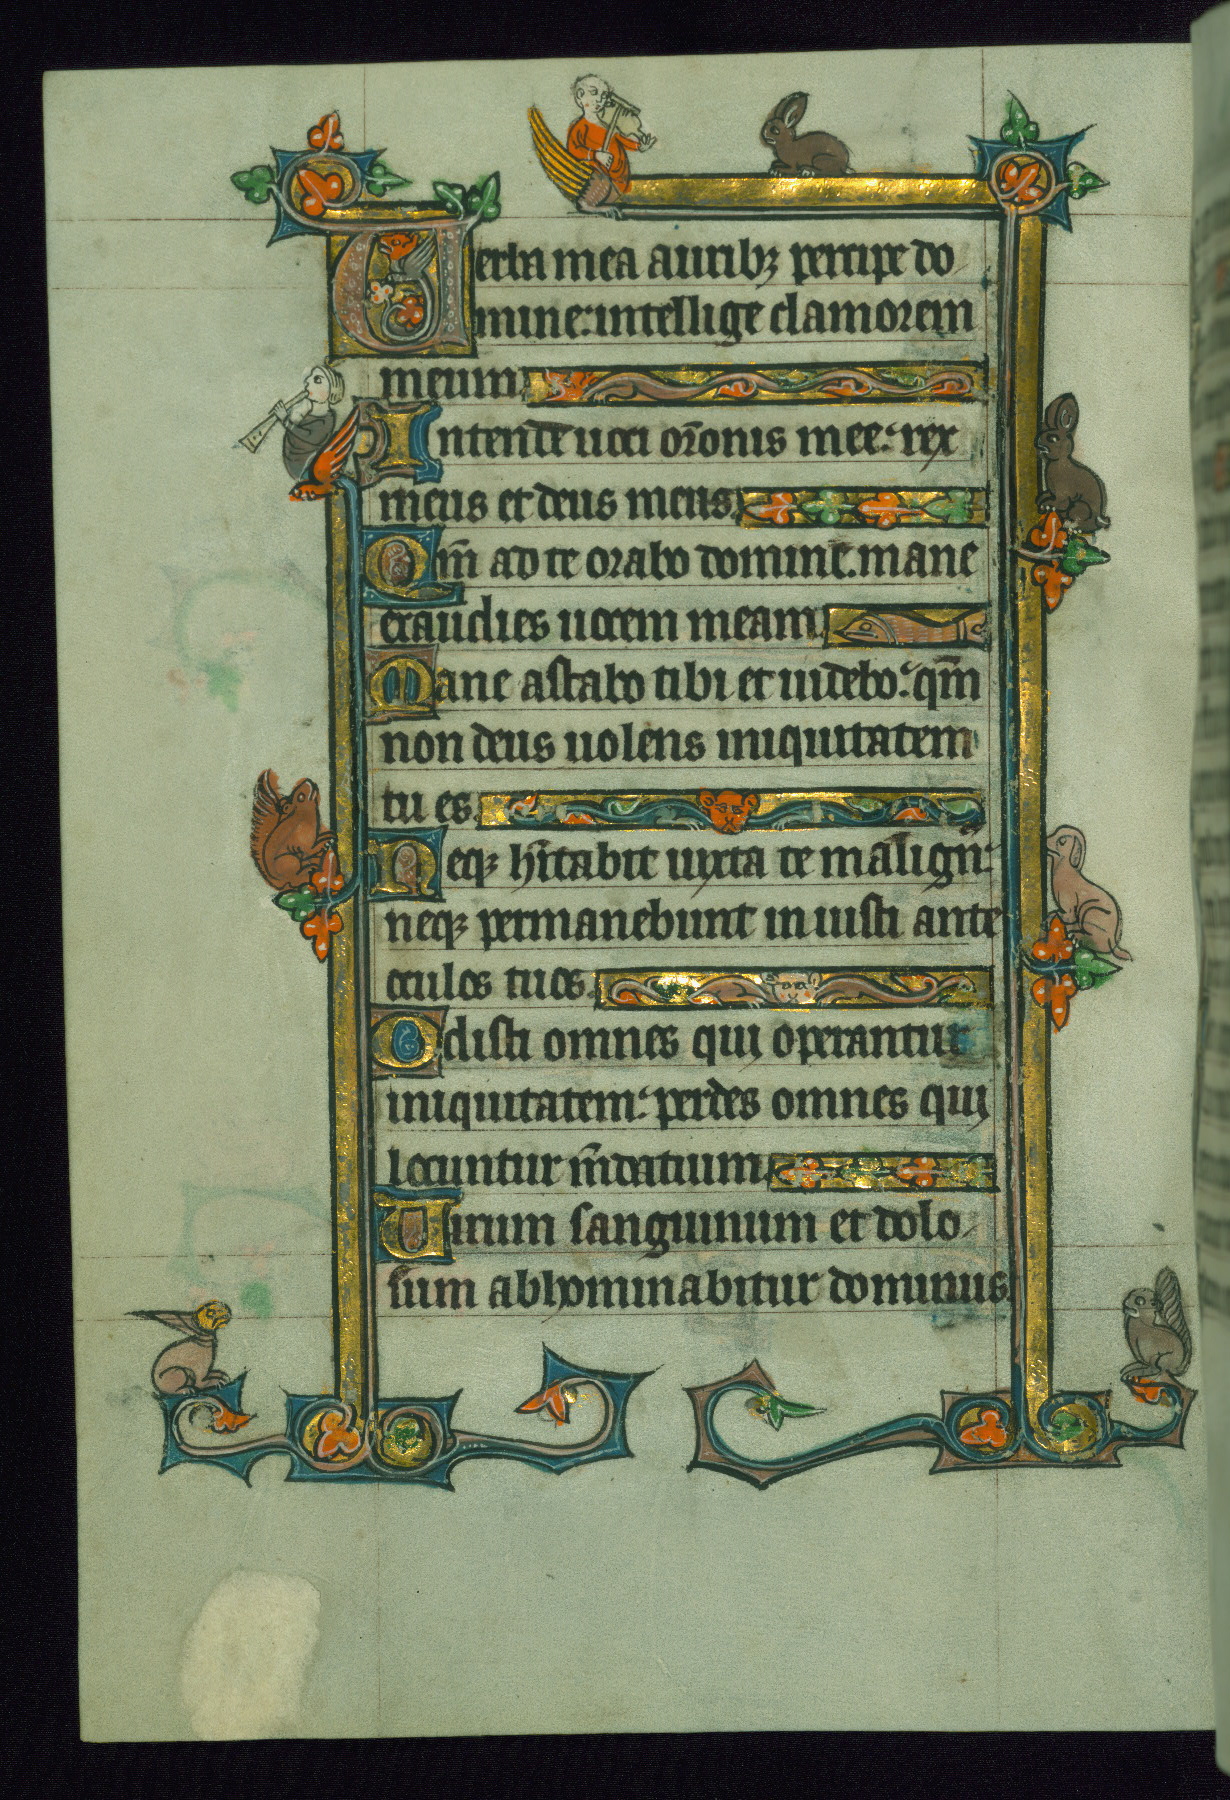 Verba mea auribꝫ percipe do
mine: intellige clamorem
meum.
Intende uoci or̄onis mee: rex
meus et deus meus.
Qm̄ ad te orabo domine. mane
exaudies uocem meam.
Mane astabo tibi et uidebo: qm̄
non deus uolens iniquitatem
tu es.
Neqꝫ hr̄tabit iuxta te malign᷒:
neqꝫ permanebunt iniusti ante
oculos tuos.
Odisti omnes qui operantur
iniquitatem: perdes omnes qui
locuntur m̄datium.
Uirum sanguinum et dolo
sum abhominabitur dominus.